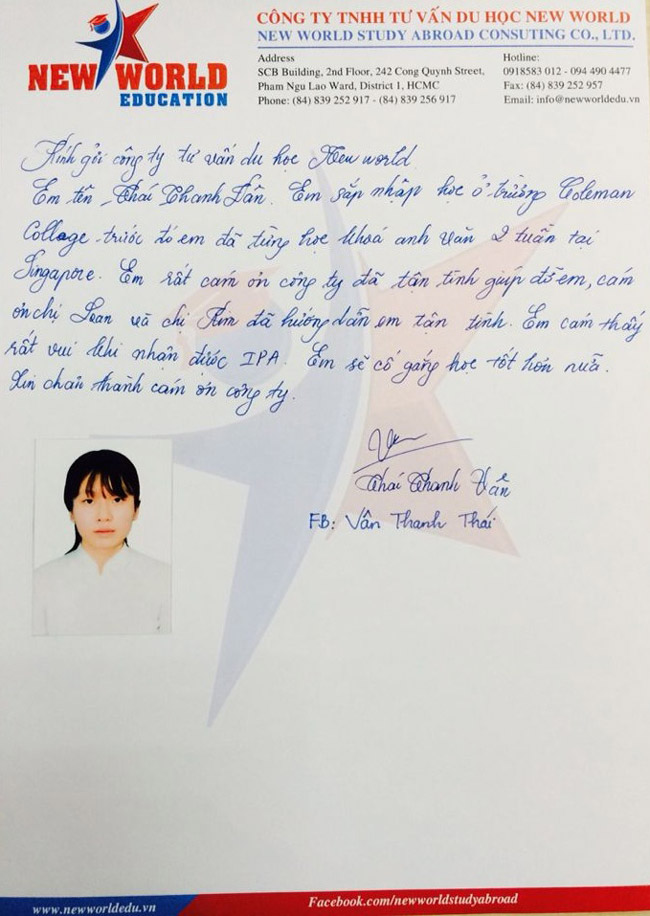 NEW WORLD
EDUCATION
CÔNG TY TNHH TƯ VẤN DU HỌC NEW WORLD
NEW WORLD STUDY ABROAD CONSUTING CO., LTD.
Address
SCB Building, 2nd Floor, 242 Cong Quynh Street,
Pham Ngu Lao Ward, District 1, HCMC
Phone: (84) 839 252 917 - (84) 839 256 917
Hotline:
0918583 012 - 094 490 4477
Fax: (84) 839 252 957
Email: info@newworldedu.vn
Kính gởi công ty tư vấn du học New world
Em tên Thái Thanh Vân. Em sắp nhập học ở trường Coleman
Collage trước đó em đã từng học khoá anh văn 2 tuần tại
Singapore. Em rất cám ơn công ty đã tận tình giúp đỡ em, cám
ơn chị Loan và chị Kim đã hướng dẫn em tận tình. Em cảm thấy
rất vui khi nhận được IPA. Em sẽ cố gắng học tốt hơn nữa.
Xin chân thành cám ơn công ty.
Thái Thanh Vân
FB: Vân Thanh Thái
www.newworldedu.vn
Facebook.com/newworldstudyabroad